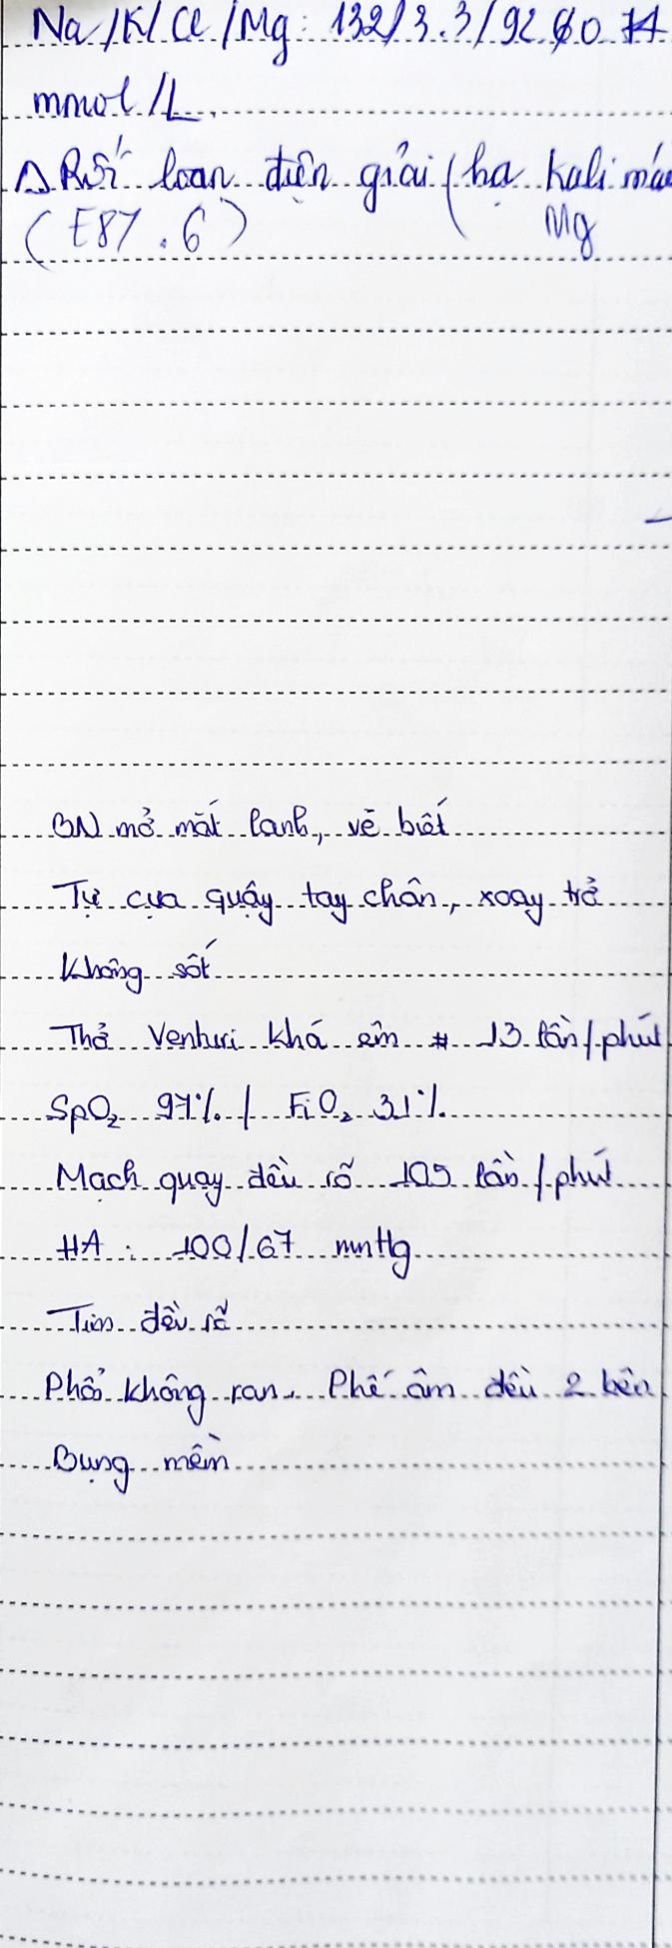 Na/K/Cl/Mg: 132/3.3/92.6/0.74
mmol/L.
Δ Rối loạn điện giải (hạ Kali máu
(E87.6) Mg
BN mở mắt lanh, vẻ biết
Tự cựa quậy tay chân, xoay trở
Không sốt
Thở Venturi khá êm # 13 lần/phút
SpO₂ 97% / FiO₂ 31%
Mạch quay đều rõ 105 lần/phút
HA: 100/67 mmHg
Tim đều rõ
Phổi không ran. Phế âm đều 2 bên
Bụng mềm